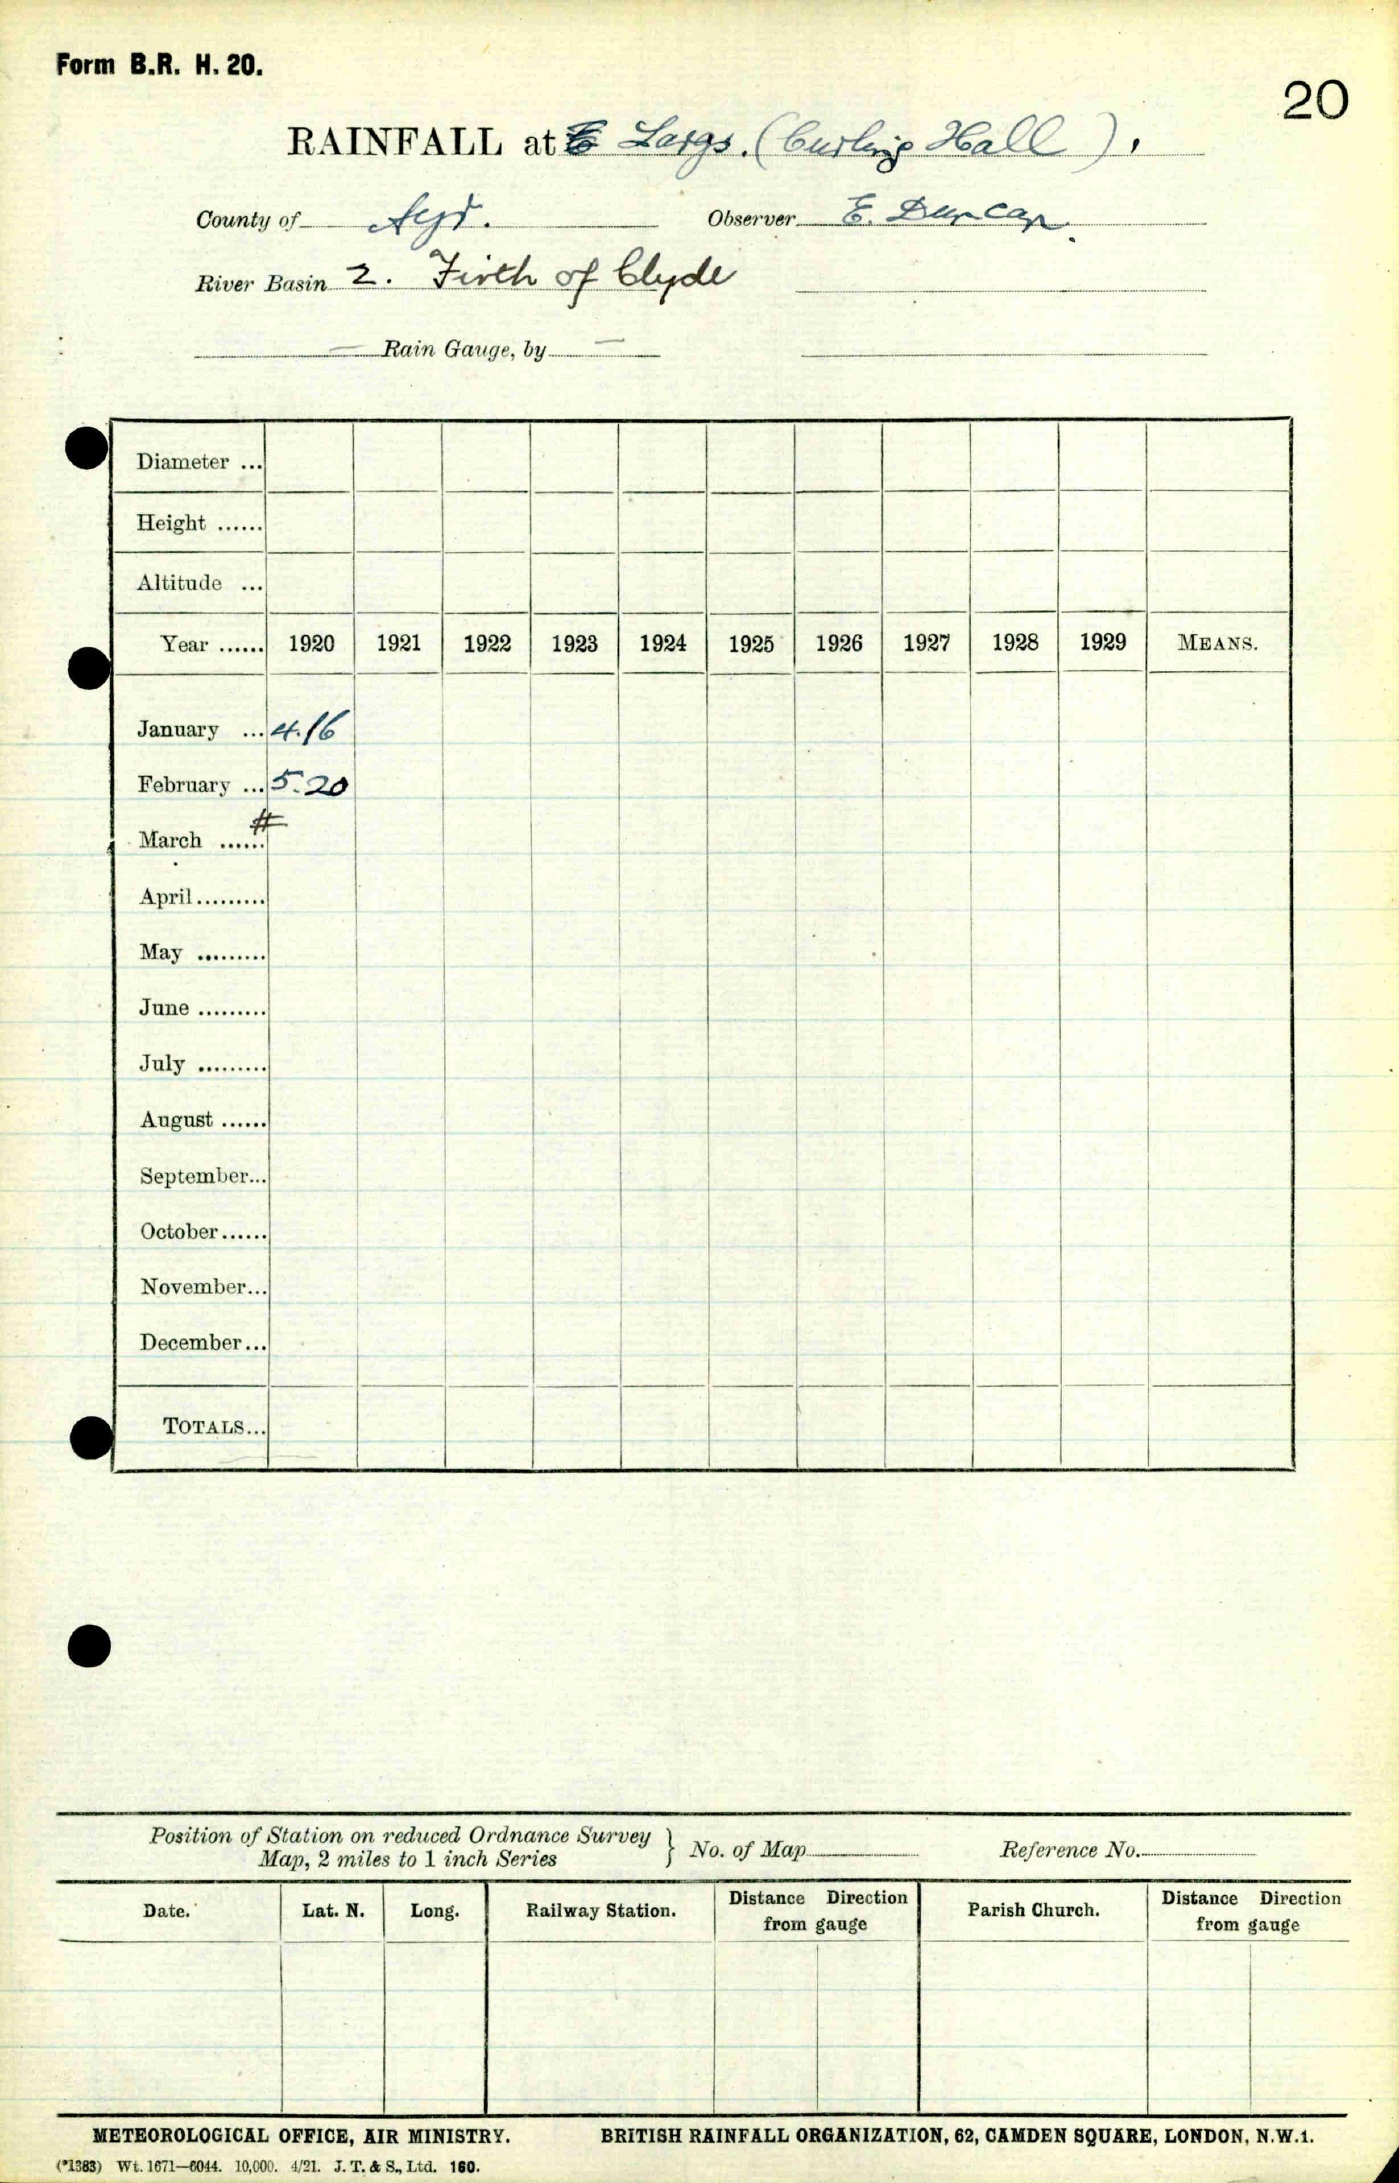 Form B.R. H. 20.
20
RAINFALL at Largs. (Curling Hall).
County of Ayr. Observer E. Duncan.
River Basin 2. Firth of Clyde
— Rain Gauge, by —
Diameter ...
Height ......
Altitude ...
Year ...... 1920 1921 1922 1923 1924 1925 1926 1927 1928 1929 MEANS.
January ... 4.16
February ... 5.20
March ...... #
April.........
May .........
June .........
July .........
August ......
September...
October......
November...
December...
TOTALS...
Position of Station on reduced Ordnance Survey
Map, 2 miles to 1 inch Series } No. of Map Reference No.
Date. Lat. N. Long. Railway Station. Distance Direction from gauge Parish Church. Distance Direction from gauge
METEOROLOGICAL OFFICE, AIR MINISTRY. BRITISH RAINFALL ORGANIZATION, 62, CAMDEN SQUARE, LONDON, N.W.1.
(*1383) Wt. 1671—6044. 10,000. 4/21. J. T. & S., Ltd. 160.